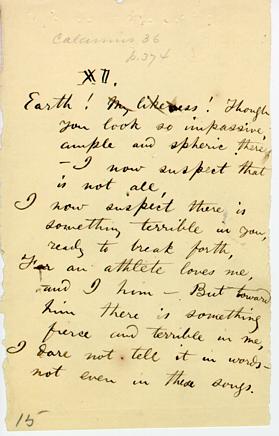 Calamus 36
p.374
XI.
Earth! My likeness! Though
you look so impassive,
ample and spheric there
– I now suspect that
is not all,
I now suspect there is
something terrible in you,
ready to break forth,
For an athlete loves me,
and I him – But toward
him there is something
fierce and terrible in me,
I dare not tell it in words –
not even in these songs.
15